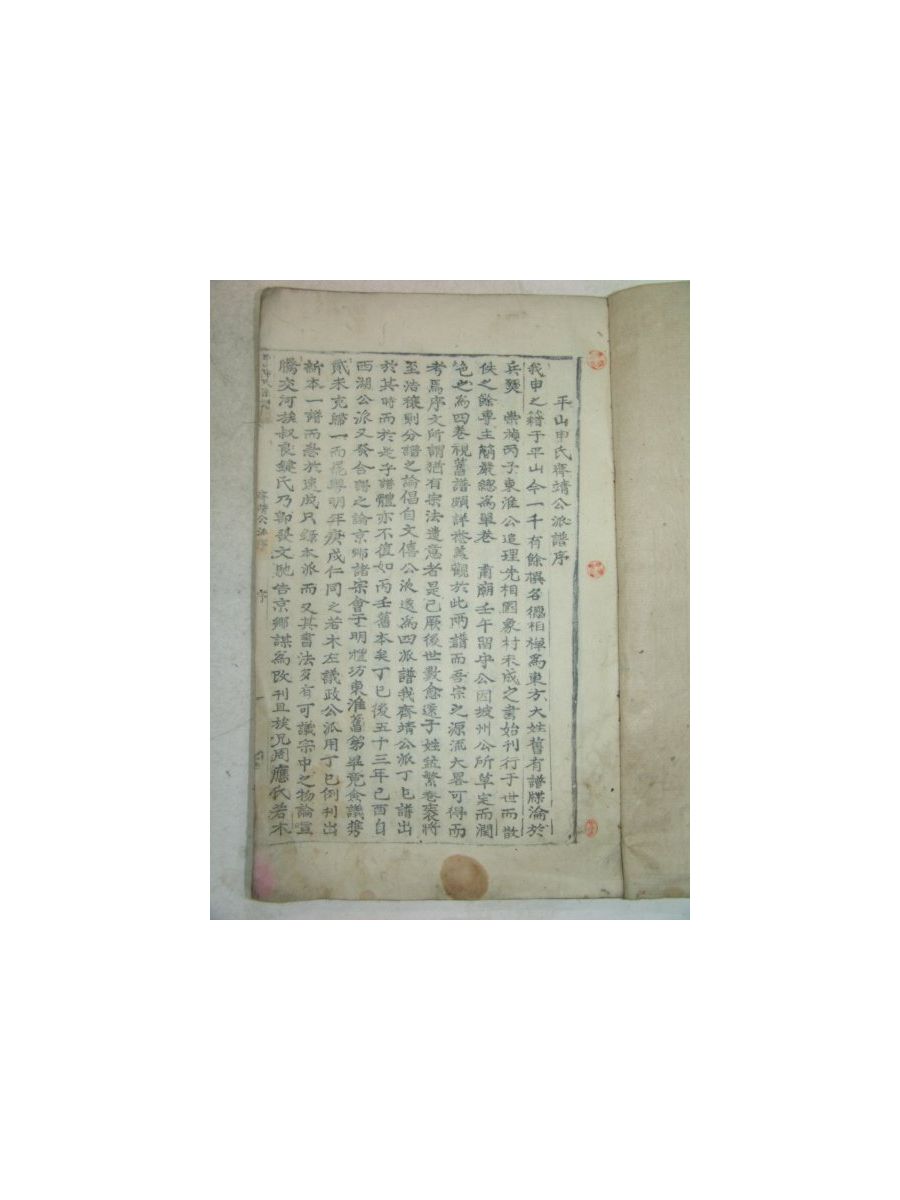 平山申氏齊靖公派譜序
我申之籍于平山今一千有餘禩名德相禪爲東方大姓舊有譜牒淪於
兵燹 崇禎丙子東淮公追理先相國象村未成之書始刊行于世而散
佚之餘專主簡嚴總爲單卷 肅廟壬午留守公因坡州公所草定而潤
色之爲四卷視舊譜頗詳蓋觀於此兩譜而吾宗之源流大畧可得而
考焉序文所謂猶有宗法遺意者是已厥後世數愈遠子姓益繁卷袠將
至浩穰則分譜之論倡自文僖公派遂爲四派譜我齊靖公派丁巳譜出
於其時而於是乎譜體亦不復如丙壬舊本矣丁巳後五十三年己酉自
西湖公派又發合譜之論京鄕諸宗會于明禮坊東淮舊第畢竟僉議携
貳未克歸一而罷粤明年庚戌仁同之若木左議政公派用丁巳例刊出
新本一譜而急於速成只錄本派而又其書法多有可議宗中之物論喧
騰交河族叔良鍵氏乃發文馳告京鄕謀爲改刊且族兄周應氏若木
齊靖公派譜 序 一